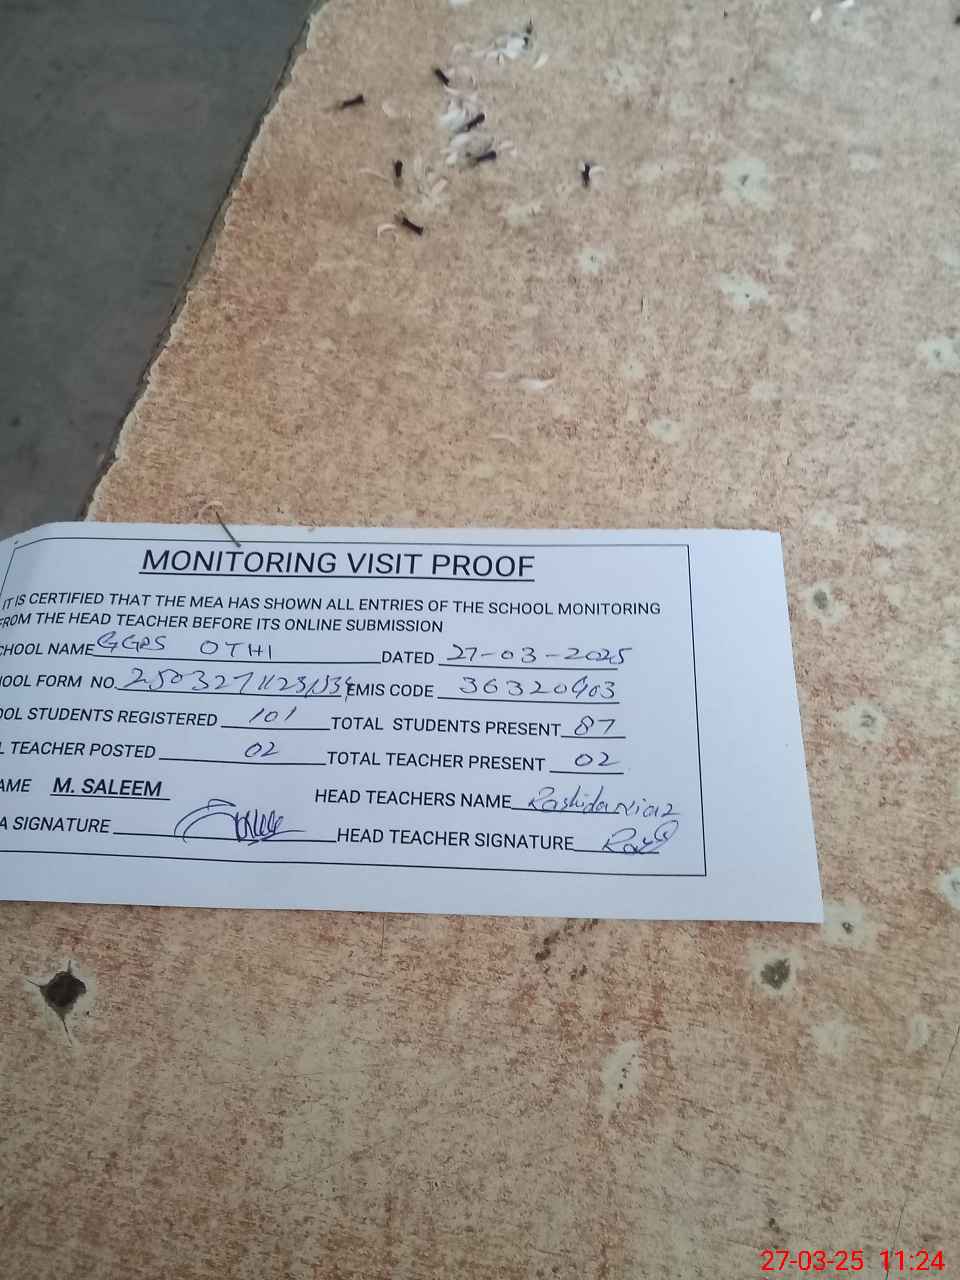 MONITORING VISIT PROOF
IT IS CERTIFIED THAT THE MEA HAS SHOWN ALL ENTRIES OF THE SCHOOL MONITORING
FROM THE HEAD TEACHER BEFORE ITS ONLINE SUBMISSION
CHOOL NAME GGPS OTHI DATED 27-03-2025
OOL FORM NO. EMIS CODE 36320403
OOL STUDENTS REGISTERED 101 TOTAL STUDENTS PRESENT 87
L TEACHER POSTED 02 TOTAL TEACHER PRESENT 02
AME M. SALEEM HEAD TEACHERS NAME Rashida Niaz
A SIGNATURE HEAD TEACHER SIGNATURE
27-03-25 11:24